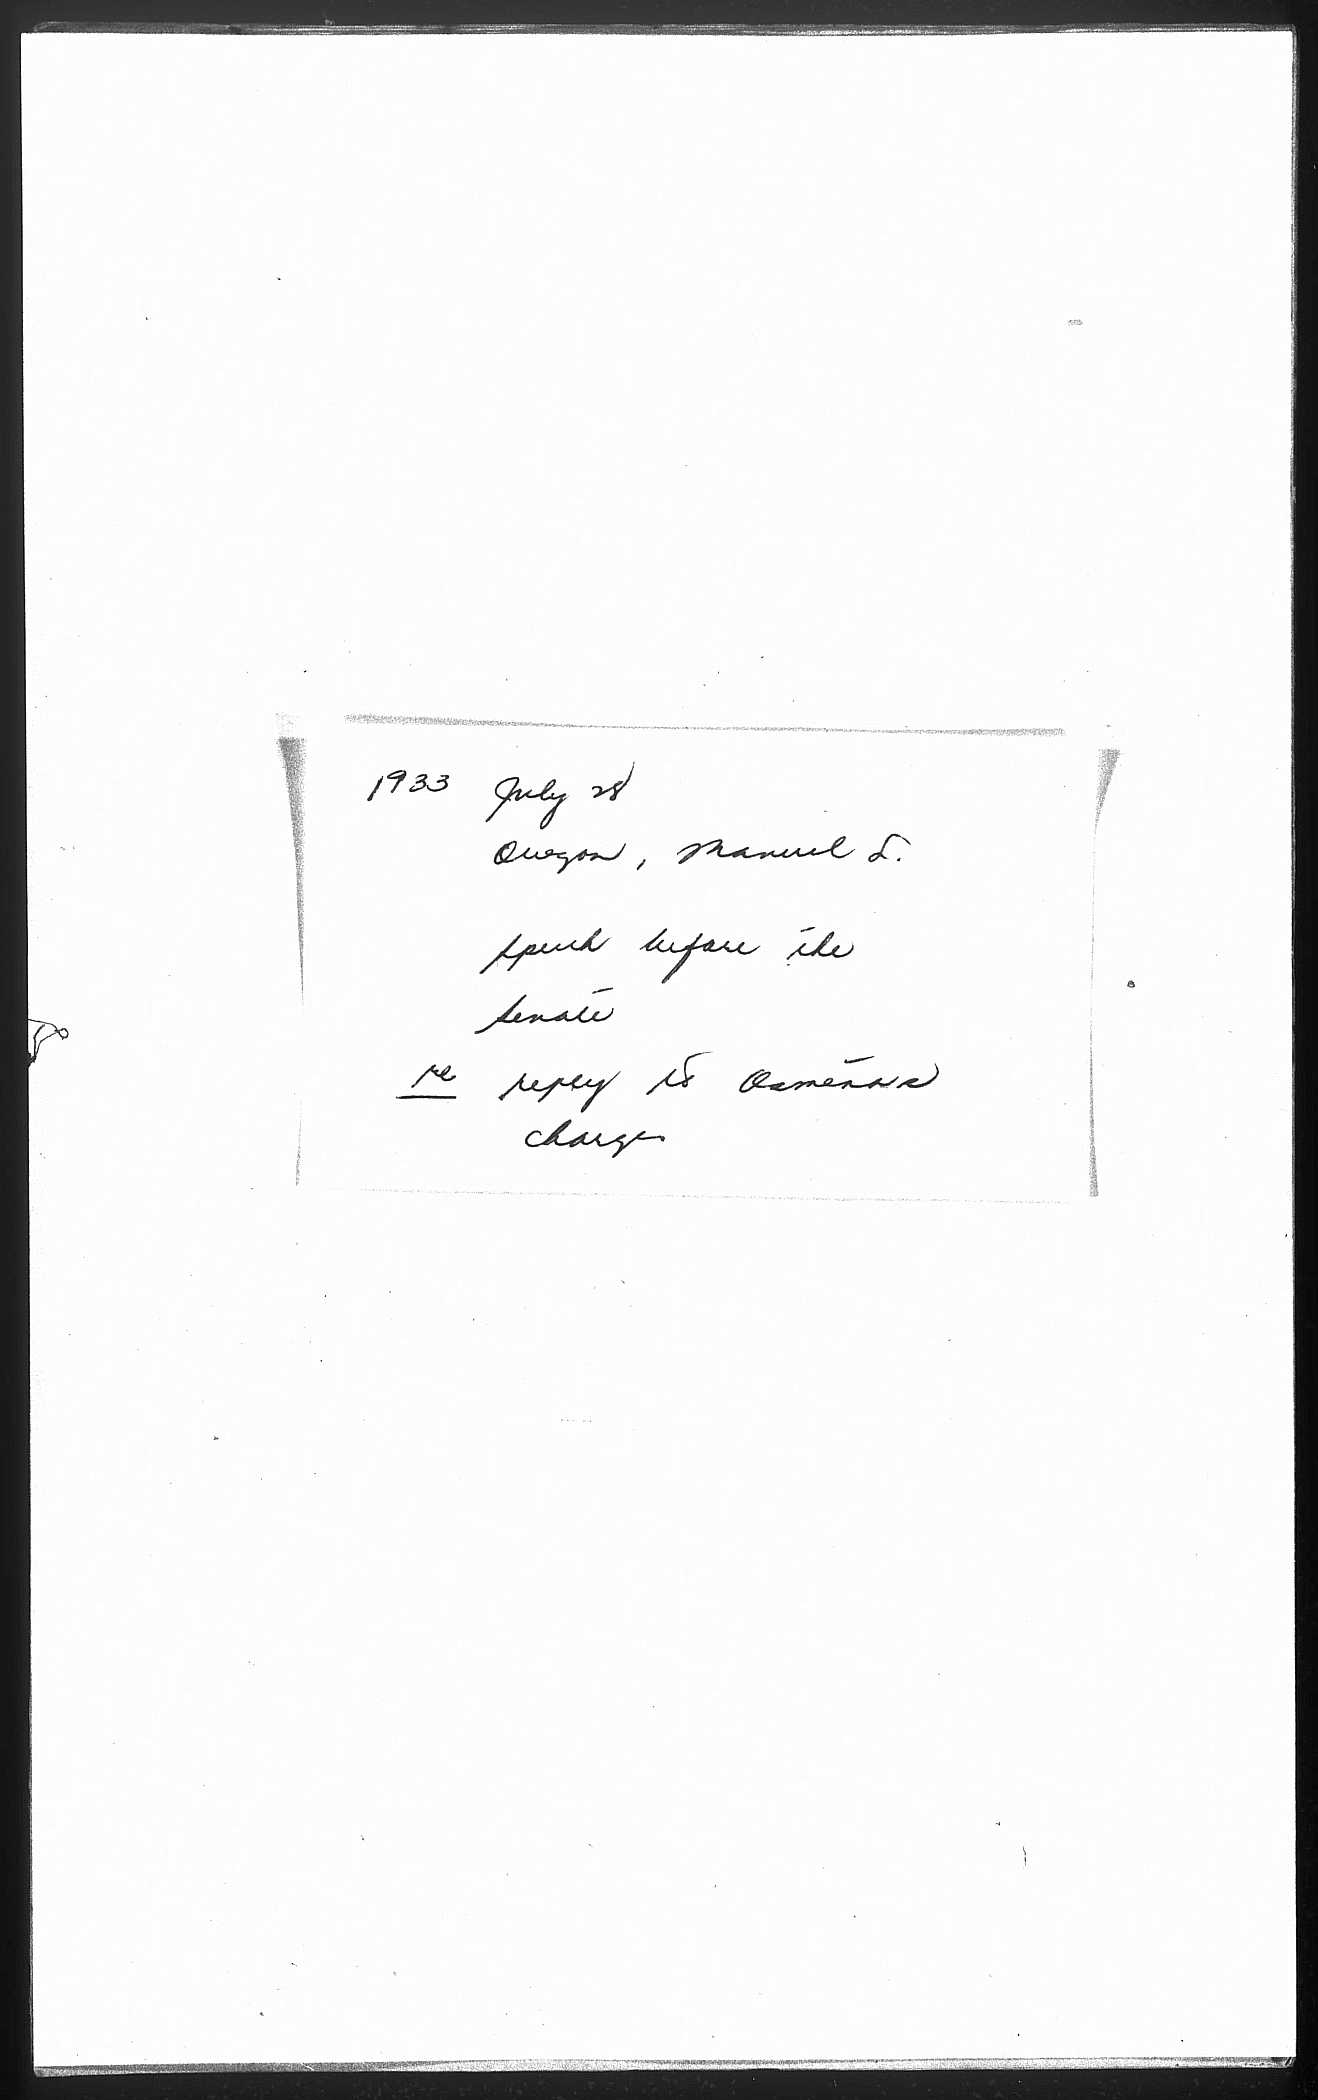 1933 July 28
Quezon, Manuel L.
speech before the
senate
re reply to Osmeña's
charges